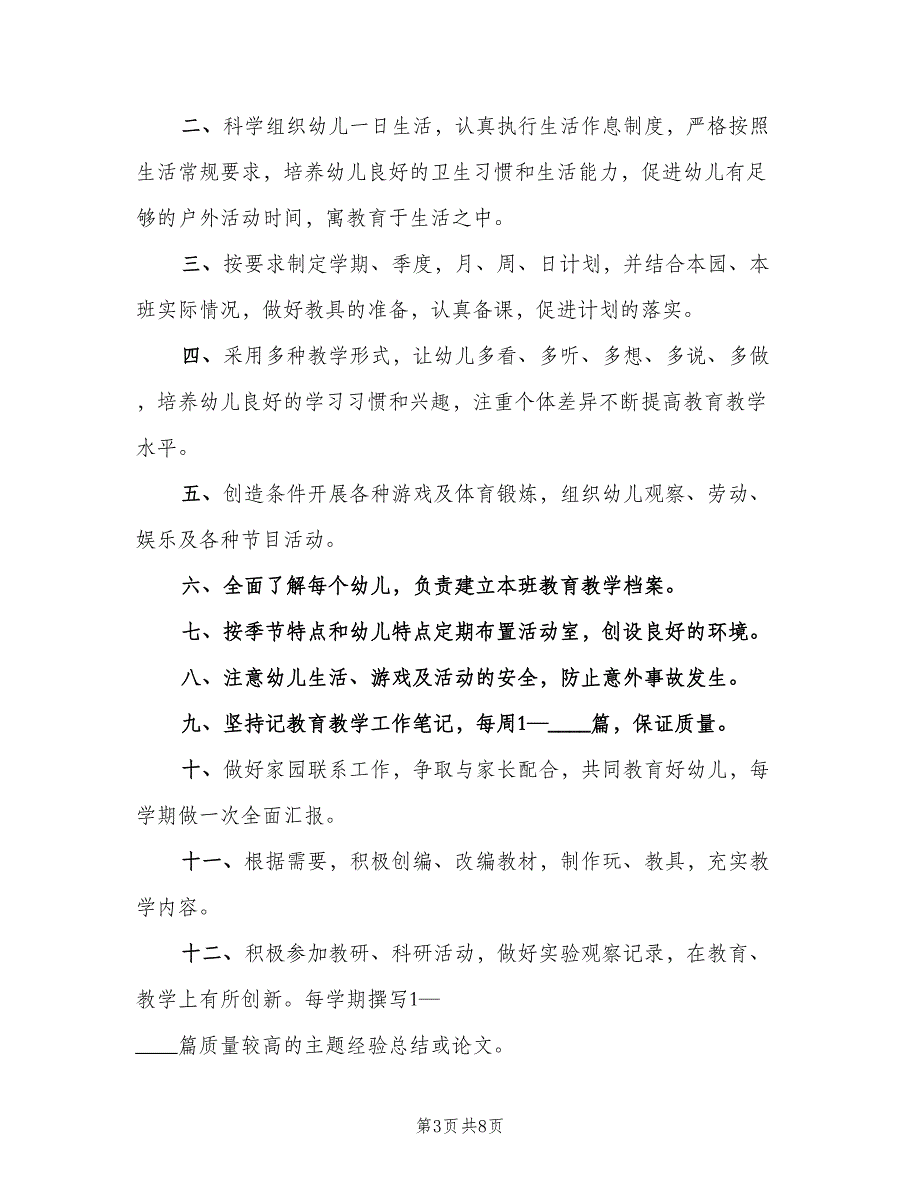 二、科学组织幼儿一日生活，认真执行生活作息制度，严格按照
生活常规要求，培养幼儿良好的卫生习惯和生活能力，促进幼儿有足
够的户外活动时间，寓教育于生活之中。
三、按要求制定学期、季度，月、周、日计划，并结合本园、本
班实际情况，做好教具的准备，认真备课，促进计划的落实。
四、采用多种教学形式，让幼儿多看、多听、多想、多说、多做
，培养幼儿良好的学习习惯和兴趣，注重个体差异不断提高教育教学
水平。
五、创造条件开展各种游戏及体育锻炼，组织幼儿观察、劳动、
娱乐及各种节目活动。
六、全面了解每个幼儿，负责建立本班教育教学档案。
七、按季节特点和幼儿特点定期布置活动室，创设良好的环境。
八、注意幼儿生活、游戏及活动的安全，防止意外事故发生。
九、坚持记教育教学工作笔记，每周1—____篇，保证质量。
十、做好家园联系工作，争取与家长配合，共同教育好幼儿，每
学期做一次全面汇报。
十一、根据需要，积极创编、改编教材，制作玩、教具，充实教
学内容。
十二、积极参加教研、科研活动，做好实验观察记录，在教育、
教学上有所创新。每学期撰写1—
____篇质量较高的主题经验总结或论文。
第3页共8页